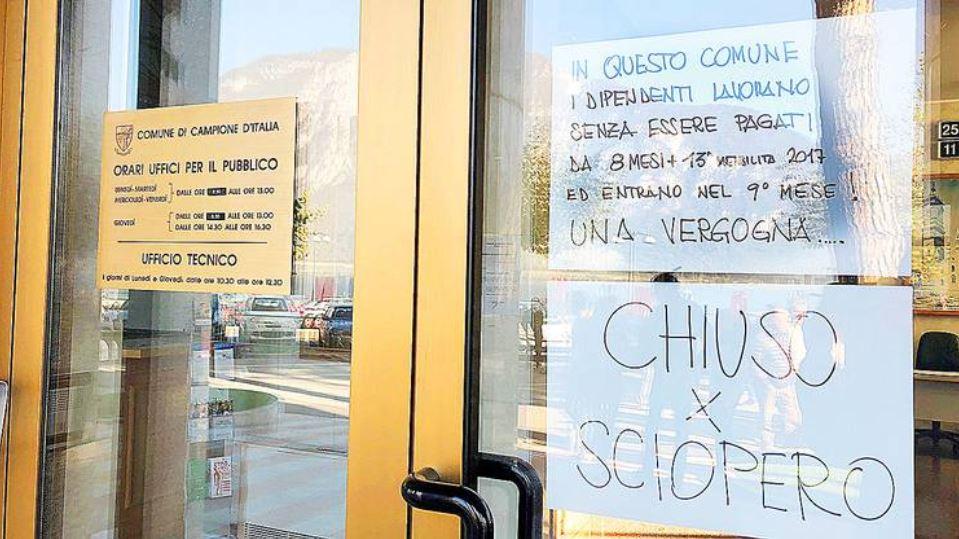 COMUNE DI CAMPIONE D'ITALIA
ORARI UFFICI PER IL PUBBLICO
LUNEDÌ-MARTEDÌ
MERCOLEDÌ-VENERDÌ
DALLE ORE ALLE ORE 13.00
GIOVEDÌ
DALLE ORE ALLE ORE 13.00
DALLE ORE 14.30 ALLE ORE 16.30
UFFICIO TECNICO
I giorni di Lunedì e Giovedì dalle ore 10.30 alle ore 12.30
IN QUESTO COMUNE
I DIPENDENTI LAVORANO
SENZA ESSERE PAGATI
DA 8 MESI + 13ª MENSILITÀ 2017
ED ENTRANO NEL 9° MESE !
UNA VERGOGNA.....
CHIUSO
X
SCIOPERO
25
11